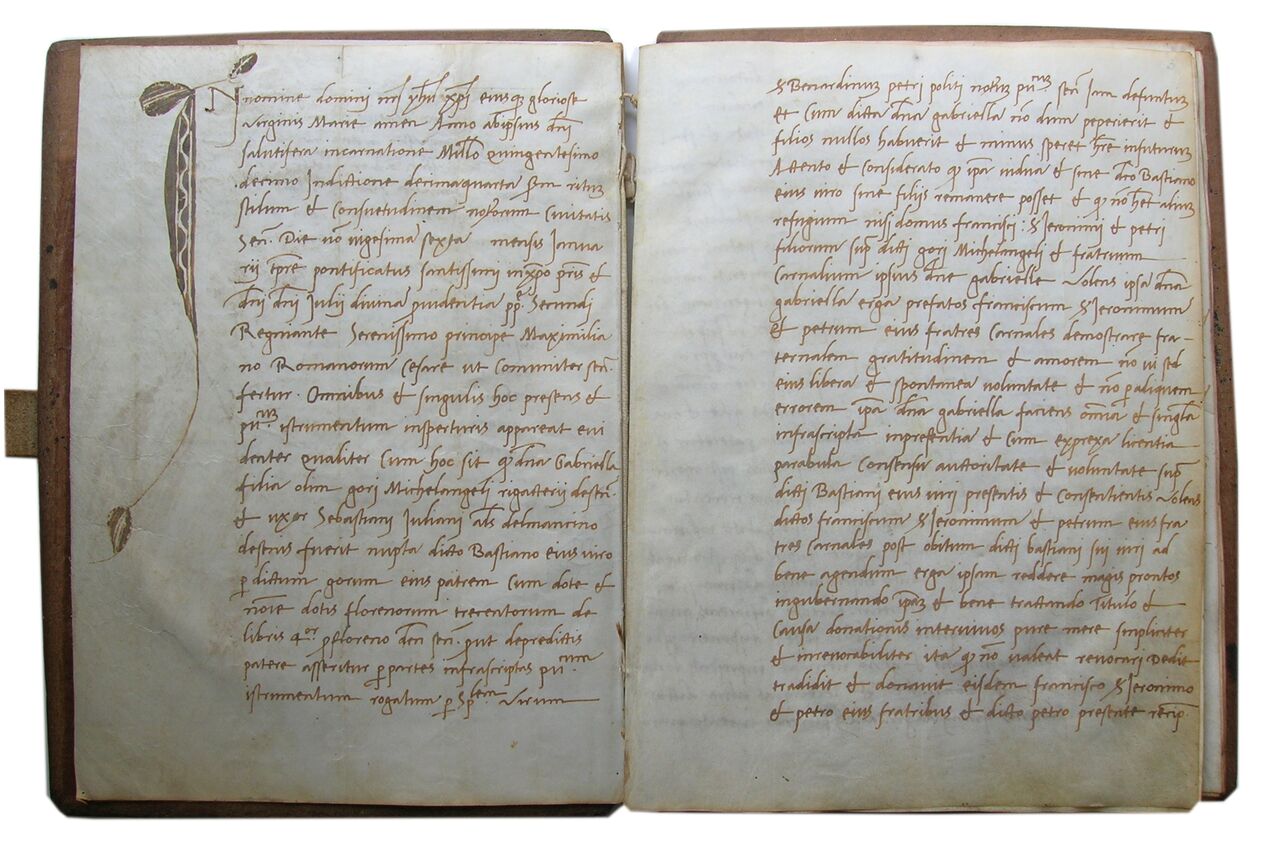 IN nomine domini nri yhu xpi eiusq gloriose
virginis Marie amen Anno abipsius dni
salutifera incarnatione Millo Quingentesimo
decimo Indictione decimaquarta scm ritum
stilum et consuetudinem notorum Civitatis
Sen. Die no vigesima sexta mensis Janua
rii tpre pontificatus santissimi inxpo pris et
dni dni Julii divina prudentia ppe Secundi
Regniante Serenissimo principe Maximilia
no Romanorum Cesare ut comuniter sen.
fertur. Omnibus et singulis hoc presens et
pu.cum istrumentum insperturis appareat evi
denter qualiter Cum hoc sit q dna Gabriella
filia olim gori Michelangeli rigatterii desen.
et uxor Sebastiani Iuliani als delmancino
desenis fuerit nupta dicto Bastiano eius viro
p dictum gorum eius patrem Cum dote et
noie dotis florenorum trecentorum de
libris 4or pro floreno den sen. put depredictis
patere asseritur p partes infrascriptas pu.cum
istrumentum rogatum p Sp.lem virum
S Benardinum petri politi notum pu.cum sen Iam defuntum
et Cum dicta dna gabriella no dum pepererit et
filios nullos habuerit et minus speret hre infuturum
Attento et considerato q ipa vidua et sine dco Bastiano
eius viro sine filiis remanere posset et q no het aliud
refugium nisi domus francisci: S Ieronimi et petri
filiorum sup dicti gori Michelangeli et fratrum
Carnalium ipsius dne gabrielle volens ipsa dna
gabriella erga prefatos franciscum S Ieronimum
et petrum eius fratres Carnales demostrare fra-
ternalem gratitudinem et amorem no vi sed
eius libera et spontanea voluntate et no p aliquem
errorem ipa dna gabriella faciens omnia et singula
infrascripta inpresentia et cum exprexa licentia
parabula Consensu auctoritate et voluntate sup
dicti Bastiani eius viri presentis et Consentientis volens
dictos franciscum S Ieronimum et petrum eius fra
tres Carnales post obitum dicti bastiani sui viri ad
bene agendum erga ipsam reddere magis prontos
ingubernando ipam et bene tractando Titulo et
Causa donationis intervivos pure mere simpliciter
et inrevocabiliter ita q no valeat revocari Dedit
tradidit et donavit eisdem francisco S Ieronimo
et petro eius fratribus et dicto petro presente recip.